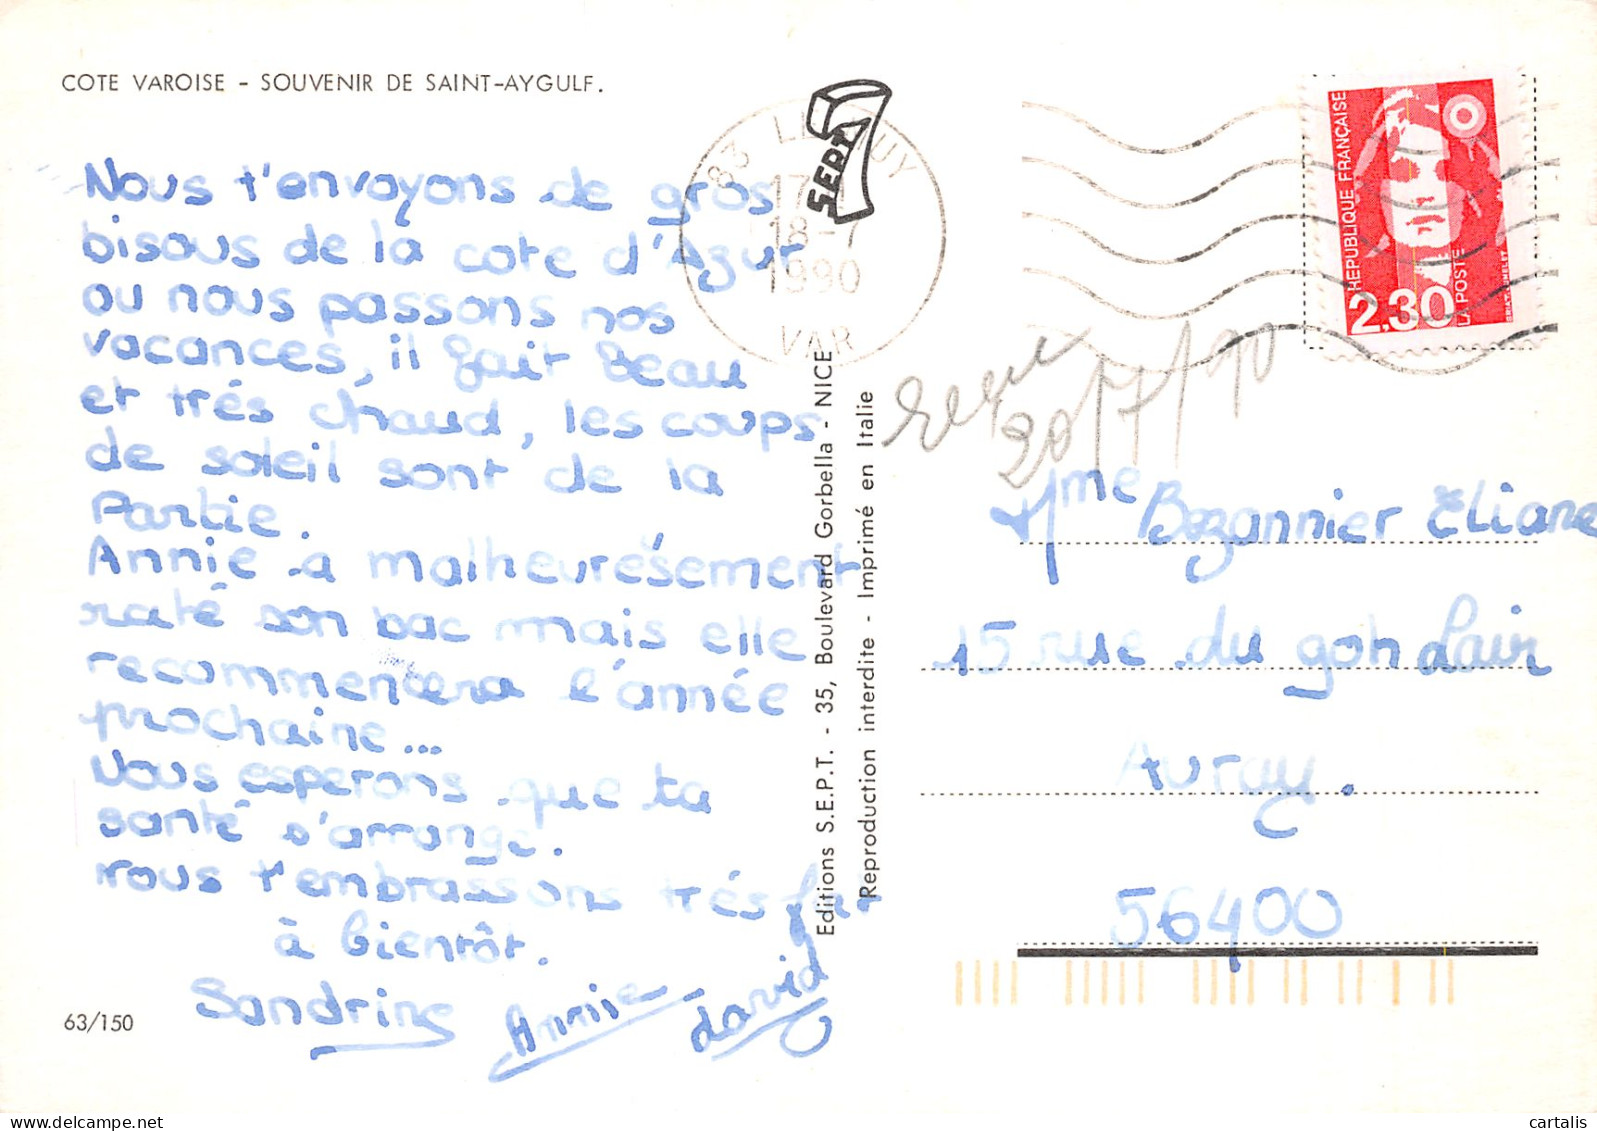 COTE VAROISE - SOUVENIR DE SAINT-AYGULF.
Nous t'envoyons de gros
bisous de la cote d'Azur
ou nous passons nos
vacances, il fait beau
et trés chaud, les coups
de soleil sont de la
Partie.
Annie a malheuresement
raté son bac mais elle
recommencera l'année
prochaine...
Nous esperons que ta
santé s'arrange.
nous t'embrassons trés fort
à bientôt.
Sandrine Annie David
63/150
SEPT
83 LE MUY
17
18-7
1990
VAR
Editions S.E.P.T. - 35, Boulevard Gorbella - NICE
Reproduction interdite - Imprimé en Italie
REPUBLIQUE FRANÇAISE
2,30
LA POSTE
20/7/90
Mme Bezannier Eliane
15 rue du goh Lair
Auray.
56400
cartalis